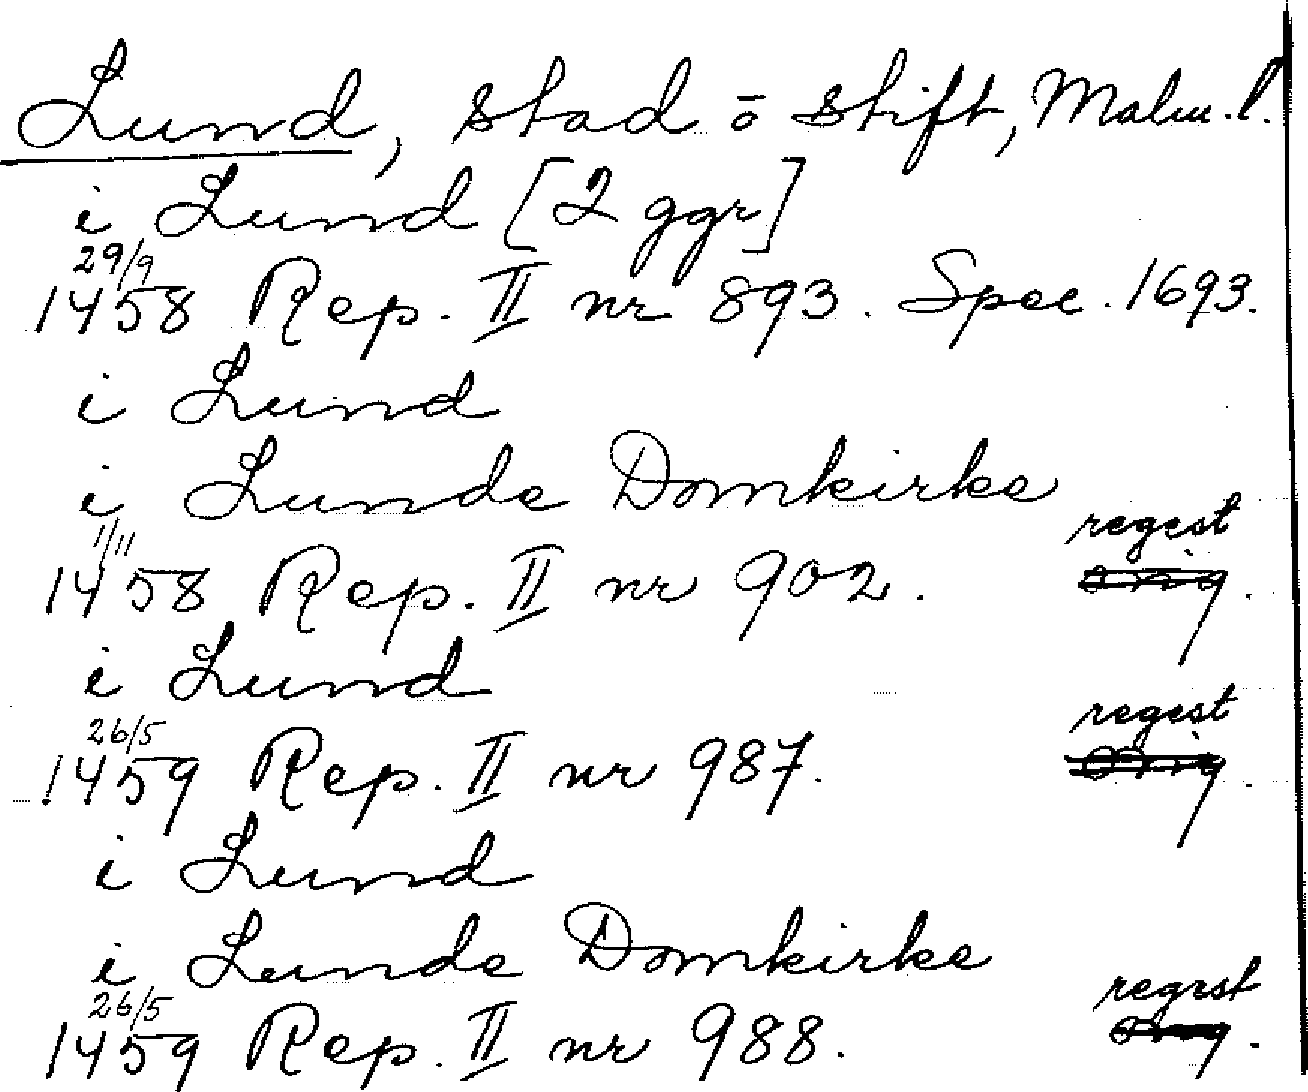 Lund, stad o stift, Malm. l.
i Lund [2 ggr]
29/9
1458 Rep. II nr 893. Spec. 1693.
i Lund
i Lunde Domkirke
1/11 regest
1458 Rep. II nr 902.
i Lund
26/5 regest
1459 Rep. II nr 987.
i Lund
i Lunde Domkirke
26/5 regest
1459 Rep. II nr 988.